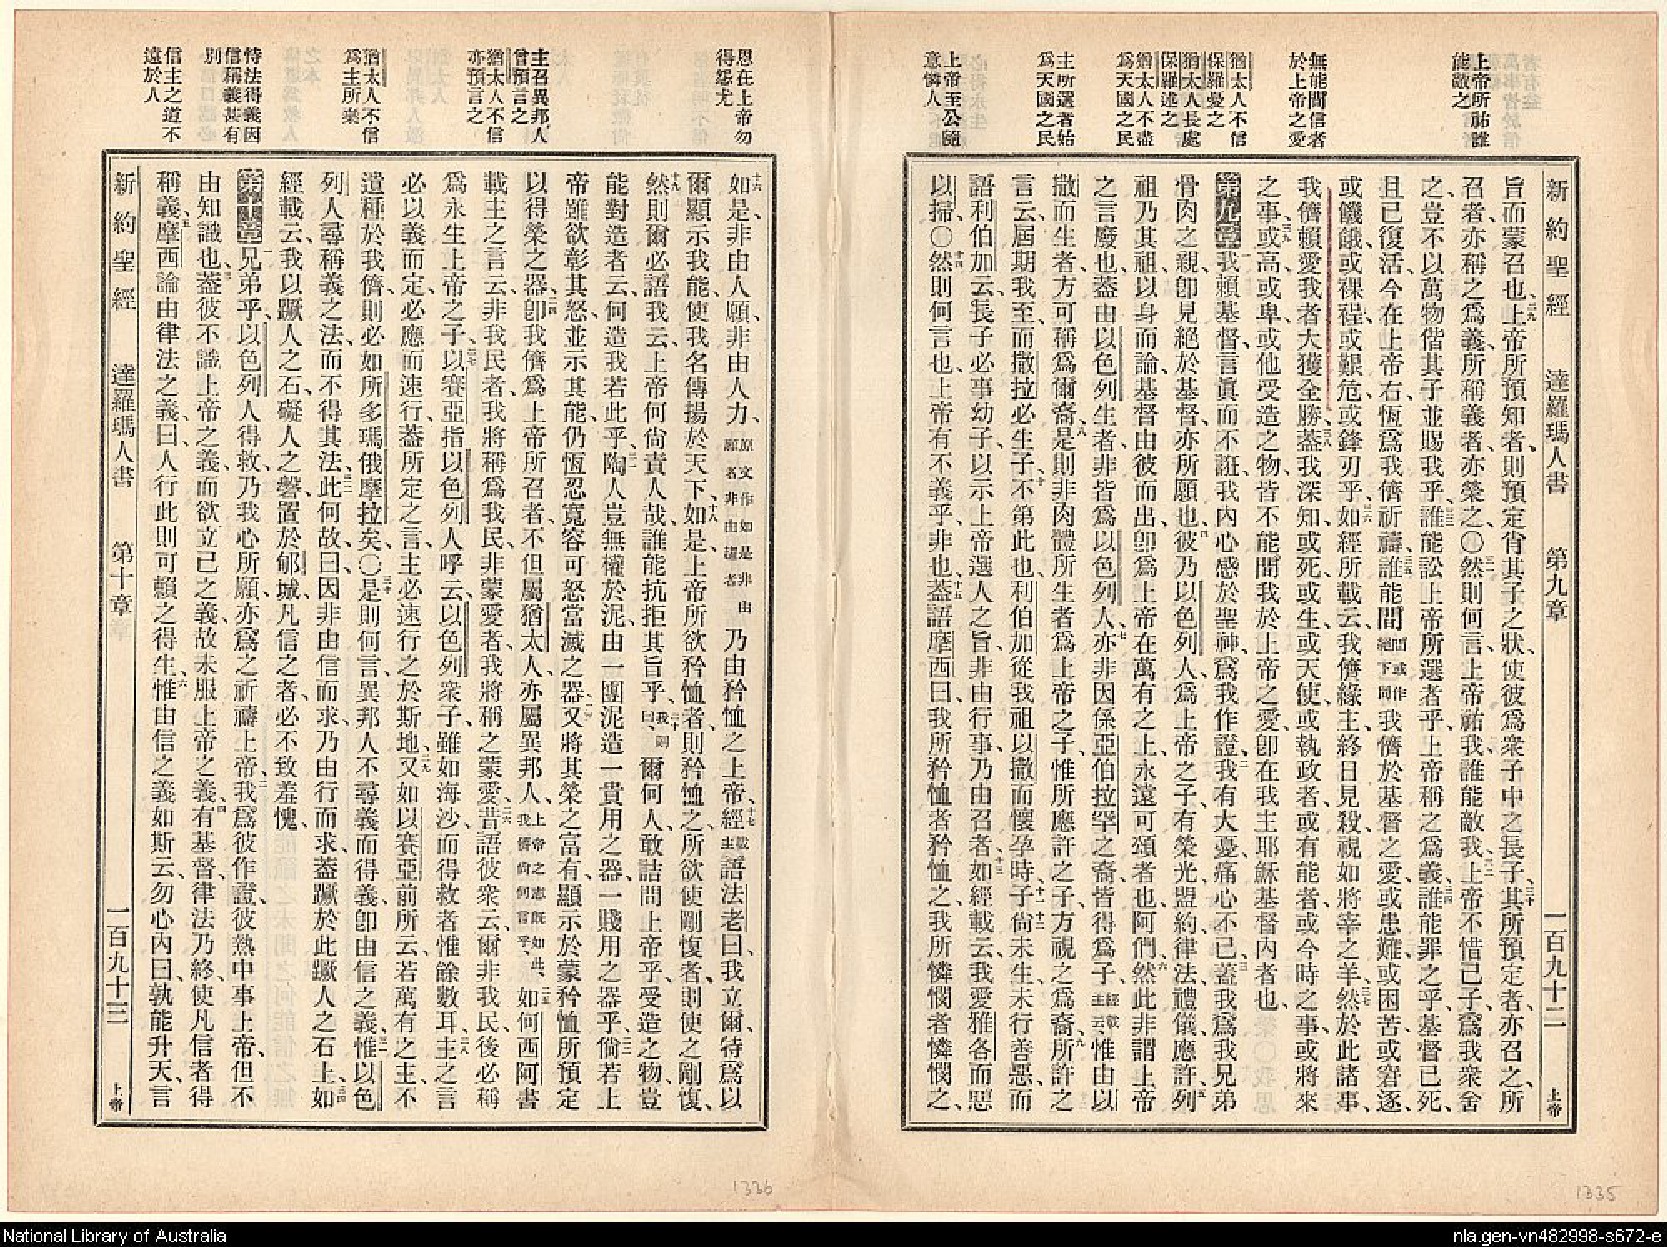 上帝所祐誰
能敵之
無能間信者
於上帝之愛
猶太人不信
保羅憂之
猶太人長處
保羅述之
猶太人不盡
爲天國之民
主所選者始
爲天國之民
上帝至公隨
意憐人
新約聖經 達羅瑪人書 第九章 一百九十二 上帝
旨而蒙召也、二九上帝所預知者、則預定肖其子之狀、使彼爲衆子中之長子、三十其所預定者、亦召之、所
召者、亦稱之爲義、所稱義者、亦榮之、〇三一然則何言、上帝祐我、誰能敵我、三二上帝不惜己子、爲我衆舍
之、豈不以萬物偕其子並賜我乎、三三誰能訟上帝所選者乎、上帝稱之爲義、三四誰能罪之乎、基督已死、
且已復活、今在上帝右、恆爲我儕祈禱、三五誰能間間或作絕下同我儕於基督之愛、或患難、或困苦、或窘逐、
或饑餓、或裸裎、或艱危、或鋒刃乎、三六如經所載云、我儕緣主、終日見殺、視如將宰之羊、三七然於此諸事、
我儕賴愛我者大獲全勝、三八蓋我深知、或死、或生、或天使、或執政者、或有能者、或今時之事、或將來
之事、三九或高、或卑、或他受造之物、皆不能間我於上帝之愛、卽在我主耶穌基督內者也、
第九章一我賴基督言眞而不誑、我內心感於聖神、爲我作證、二我有大憂、痛心不已、三蓋我爲我兄弟
骨肉之親、卽見絕於基督、亦所願也、四彼乃以色列人、爲上帝之子、有榮光盟約律法禮儀應許、五列
祖乃其祖、以身而論、基督由彼而出、卽爲上帝在萬有之上、永遠可頌者也、阿們、六然此非謂上帝
之言廢也、蓋由以色列生者、非皆爲以色列人、七亦非因係亞伯拉罕之裔、皆得爲子、經載主云、惟由以
撒而生者、方可稱爲爾裔、八是則非肉體所生者、爲上帝之子、惟所應許之子、方視之爲裔、九所許之
言云、屆期我至而撒拉必生子、十不第此也、利伯加從我祖以撒而懷孕時、十一子尚未生、未行善惡、而十二
語利伯加云、長子必事幼子、以示上帝選人之旨、非由行事、乃由召者、十三如經載云、我愛雅各而惡
以掃、〇十四然則何言也、上帝有不義乎、非也、十五蓋語摩西曰、我所矜恤者矜恤之、我所憐憫者憐憫之、
1335
恩在上帝勿
得怨尤
主召異邦人
曾預言之
猶太人不信
亦預言之
猶太人不信
爲主所棄
恃法得義因
信稱義甚有
別
信主之道不
遠於人
十六如是、非由人願、非由人力、原文作如是非由願者非由趨者乃由矜恤之上帝、十七經載主語法老曰、我立爾、特爲以
爾顯示我能、使我名傳揚於天下、十八如是、上帝所欲矜恤者、則矜恤之、所欲使剛愎者、則使之剛愎、
十九然則爾必語我云、上帝何尚責人哉、誰能抗拒其旨乎、二十我則曰、爾何人、敢詰問上帝乎、受造之物、豈
能對造者云、何造我若此乎、二一陶人豈無權於泥、由一團泥造一貴用之器、一賤用之器乎、二二倘若上
帝雖欲彰其怒、並示其能、仍恆忍寬容可怒當滅之器、二三又將其榮之富有、顯示於蒙矜恤所預定
以得榮之器、二四卽我儕爲上帝所召者、不但屬猶太人、亦屬異邦人、上帝之意旣如此、我儕尚何言乎、二五如何西阿書
載主之言云、非我民者、我將稱爲我民、非蒙愛者、我將稱之蒙愛、二六昔語彼衆云、爾非我民、後必稱
爲永生上帝之子、二七以賽亞指以色列人呼云、以色列衆子、雖如海沙、而得救者惟餘數耳、二八主之言
必以義而定、必應而速行、蓋所定之言、主必速行之於斯地、二九又如以賽亞前所云、若萬有之主、不
遺種於我儕、則必如所多瑪俄摩拉矣、〇三十是則何言、異邦人不尋義而得義、卽由信之義、三一惟以色
列人尋稱義之法、而不得其法、三二此何故、曰因非由信而求、乃由行而求、蓋蹶於此蹶人之石上、三三如
經載云、我以蹶人之石、礙人之磐、置於郇城、凡信之者、必不致羞愧、
第十章一兄弟乎、以色列人得救、乃我心所願、亦爲之祈禱上帝、二我爲彼作證、彼熱中事上帝、但不
由知識也、三蓋彼不識上帝之義、而欲立己之義、故未服上帝之義、四有基督、律法乃終、使凡信者得
稱義、五摩西論由律法之義曰、人行此則可賴之得生、六惟由信之義如斯云、勿心內曰、孰能升天、言
新約聖經 達羅瑪人書 第十章 一百九十三 上帝
1336
National Library of Australia
nla.gen-vn482998-s672-e